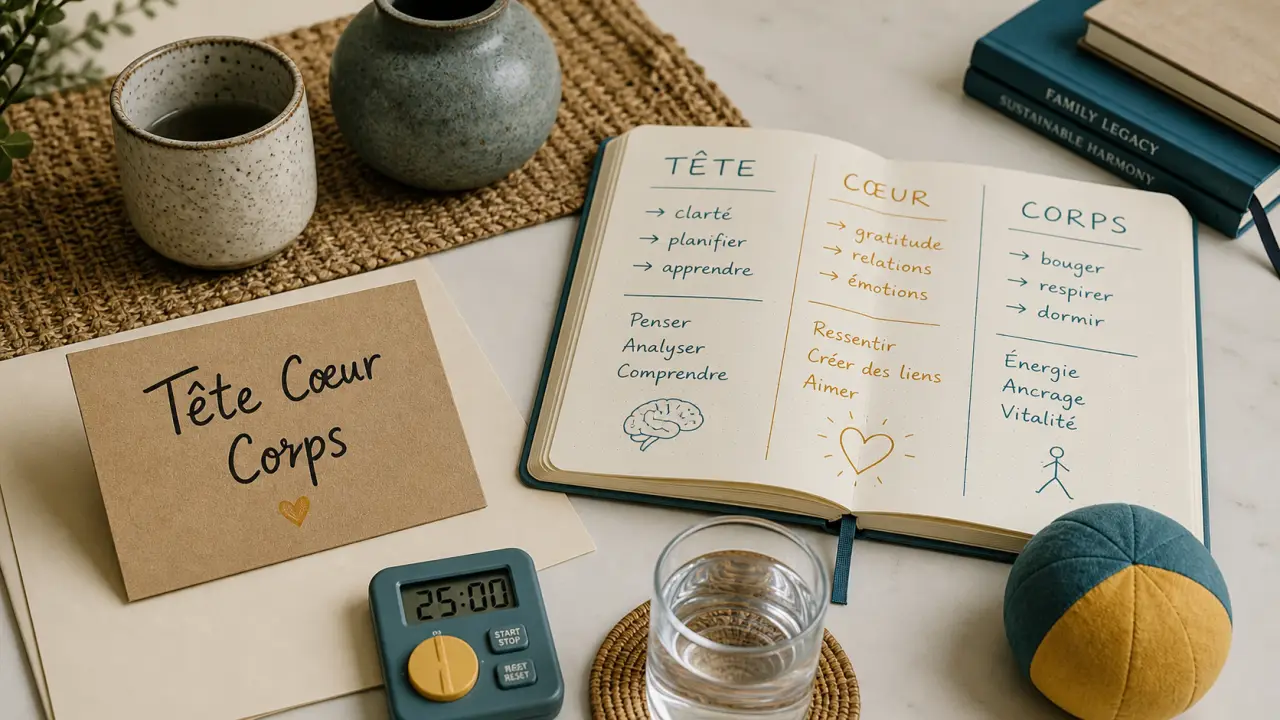 Tête Cœur
Corps
TÊTE
→ clarté
→ planifier
→ apprendre
Penser
Analyser
Comprendre
CŒUR
→ gratitude
→ relations
→ émotions
Ressentir
Créer des liens
Aimer
CORPS
→ bouger
→ respirer
→ dormir
Énergie
Ancrage
Vitalité
FAMILY LEGACY
SUSTAINABLE HARMONY
25:00
START
STOP
RESET